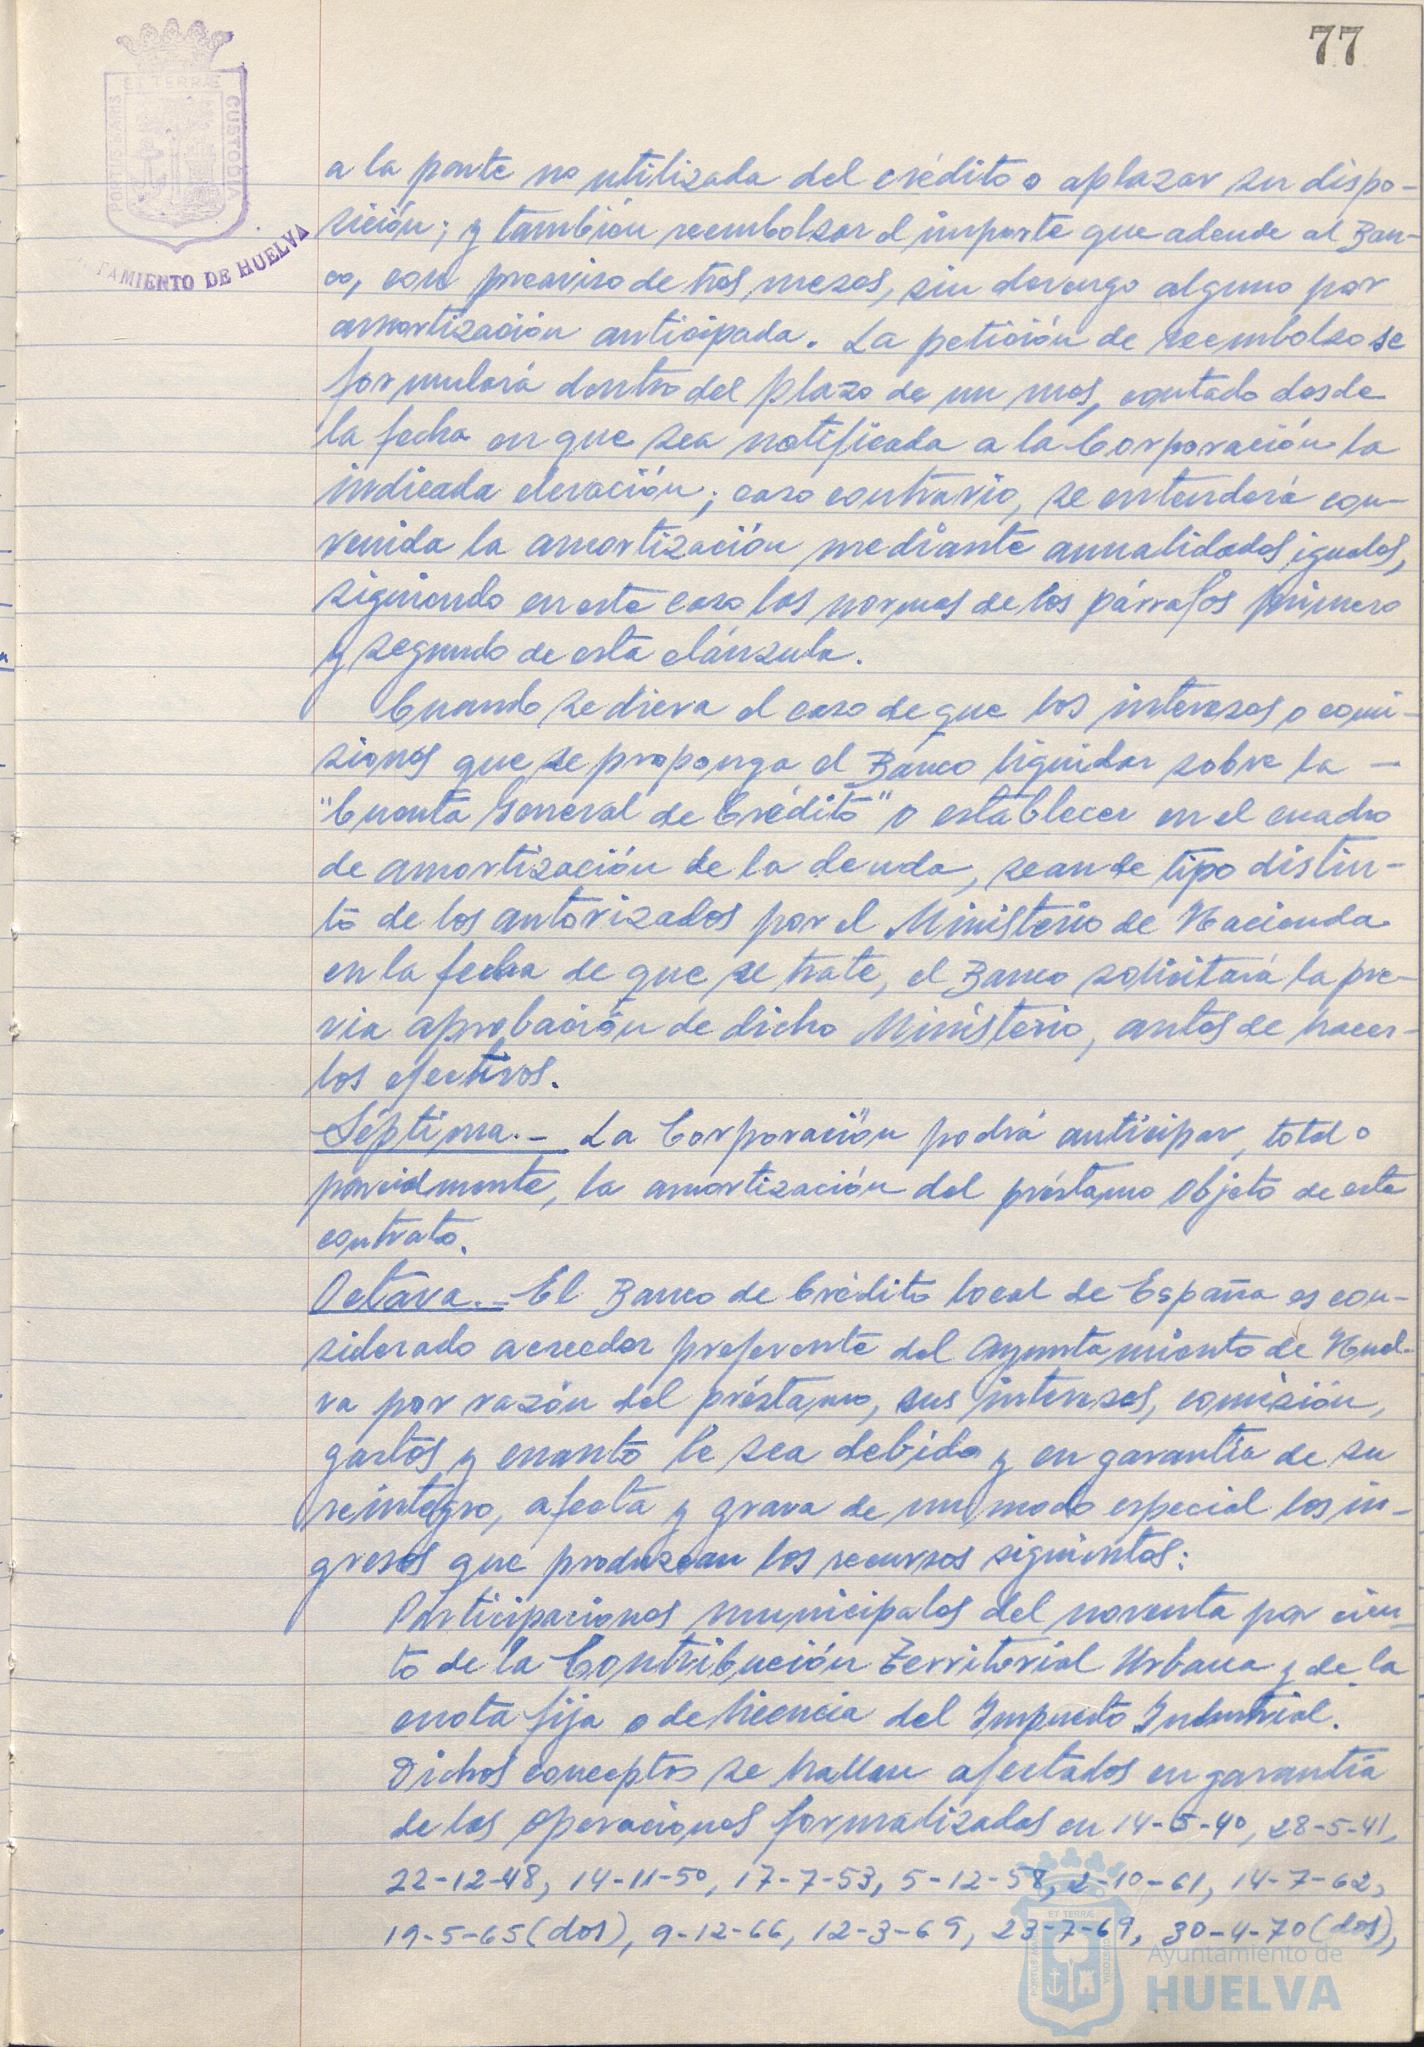 77
PORTUS MARIS
ET TERRÆ
CUSTODIA
TAMIENTO DE HUELVA
a la parte no utilizada del crédito o aplazar su dispo-
sición; y también reembolsar el importe que adeude al Ban-
co, con preaviso de tres meses, sin devengo alguno por
amortización anticipada. La petición de reembolso se
formulará dentro del plazo de un mes, contado desde
la fecha en que sea notificada a la Corporación la
indicada elevación; caso contrario, se entenderá con-
venida la amortización mediante anualidades iguales,
siguiendo en este caso las normas de los párrafos primero
y segundo de esta cláusula.
Cuando se diera el caso de que los intereses o comi-
siones que se proponga el Banco liquidar sobre la -
"Cuenta General de Crédito" o establecer en el cuadro
de amortización de la deuda, sean de tipo distin-
to de los autorizados por el Ministerio de Hacienda
en la fecha de que se trate, el Banco solicitará la pre-
via aprobación de dicho Ministerio, antes de hacer-
los efectivos.
Séptima.- La Corporación podrá anticipar, total o
parcialmente, la amortización del préstamo objeto de este
contrato.
Octava.- El Banco de Crédito Local de España es con-
siderado acreedor preferente del Ayuntamiento de Huel-
va por razón del préstamo, sus intereses, comisión,
gastos y cuanto le sea debido y en garantía de su
reintegro, afecta y grava de un modo especial los in-
gresos que produzcan los recursos siguientes:
Participaciones municipales del noventa por cien-
to de la Contribución Territorial Urbana y de la
cuota fija o de licencia del Impuesto Industrial.
Dichos conceptos se hallan afectados en garantía
de las operaciones formalizadas en 14-5-40, 28-5-41,
22-12-48, 14-11-50, 17-7-53, 5-12-58, 2-10-61, 14-7-62,
19-5-65 (dos), 9-12-66, 12-3-69, 23-7-69, 30-4-70 (dos),
Ayuntamiento de
HUELVA